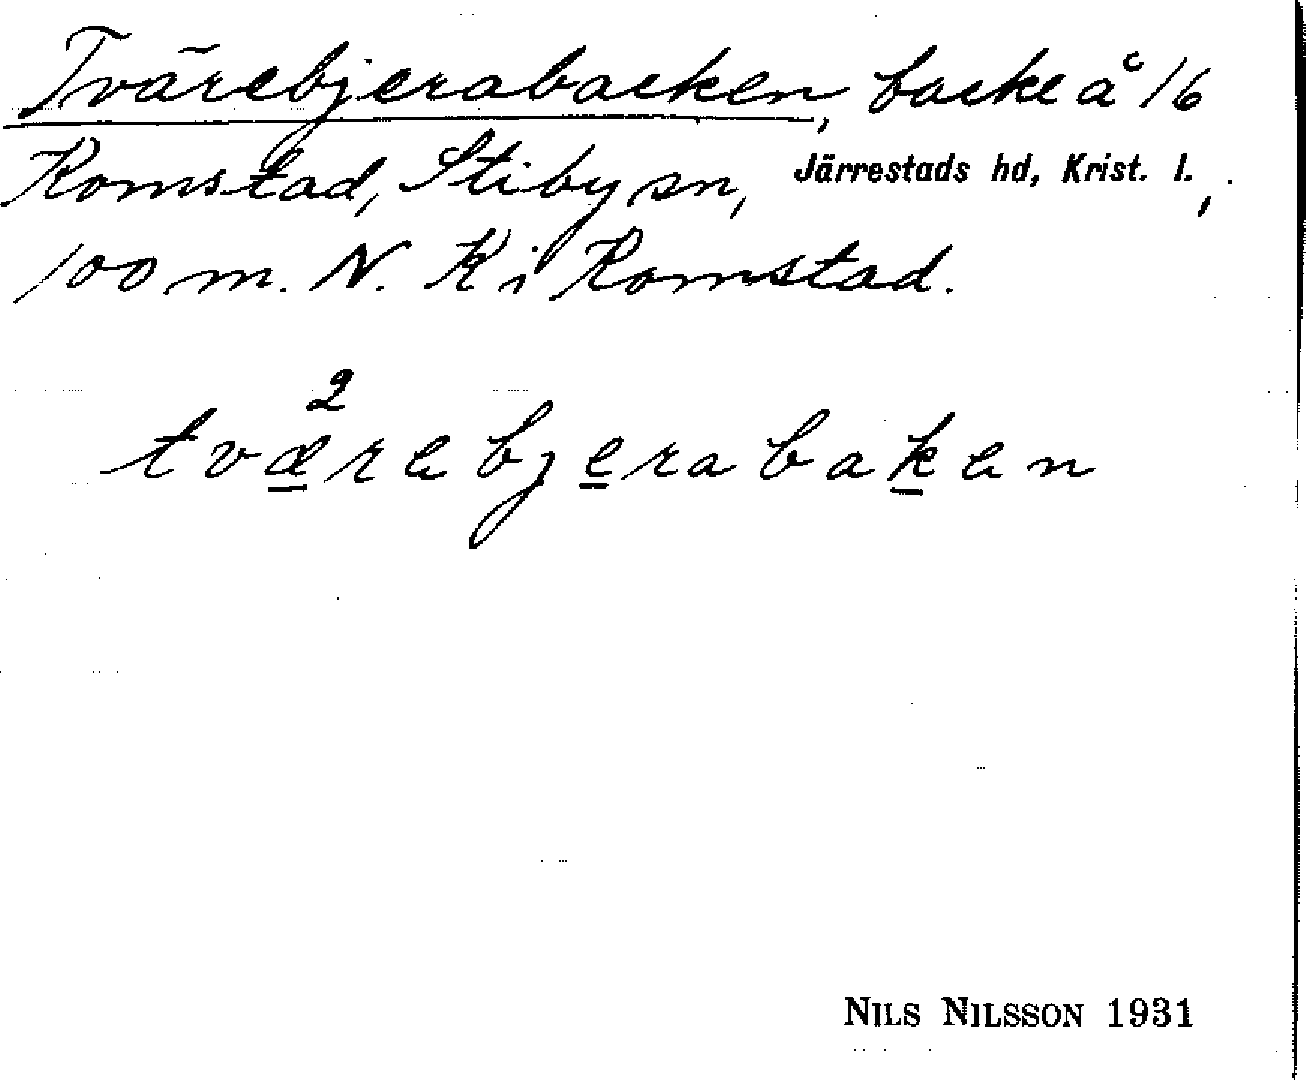 Tvärebjerabacken, backe å 16
Komstad, Stiby sn, Järrestads hd, Krist. l.,
100 m. N. K i Komstad.
2
tværebjerabaken
NILS NILSSON 1931